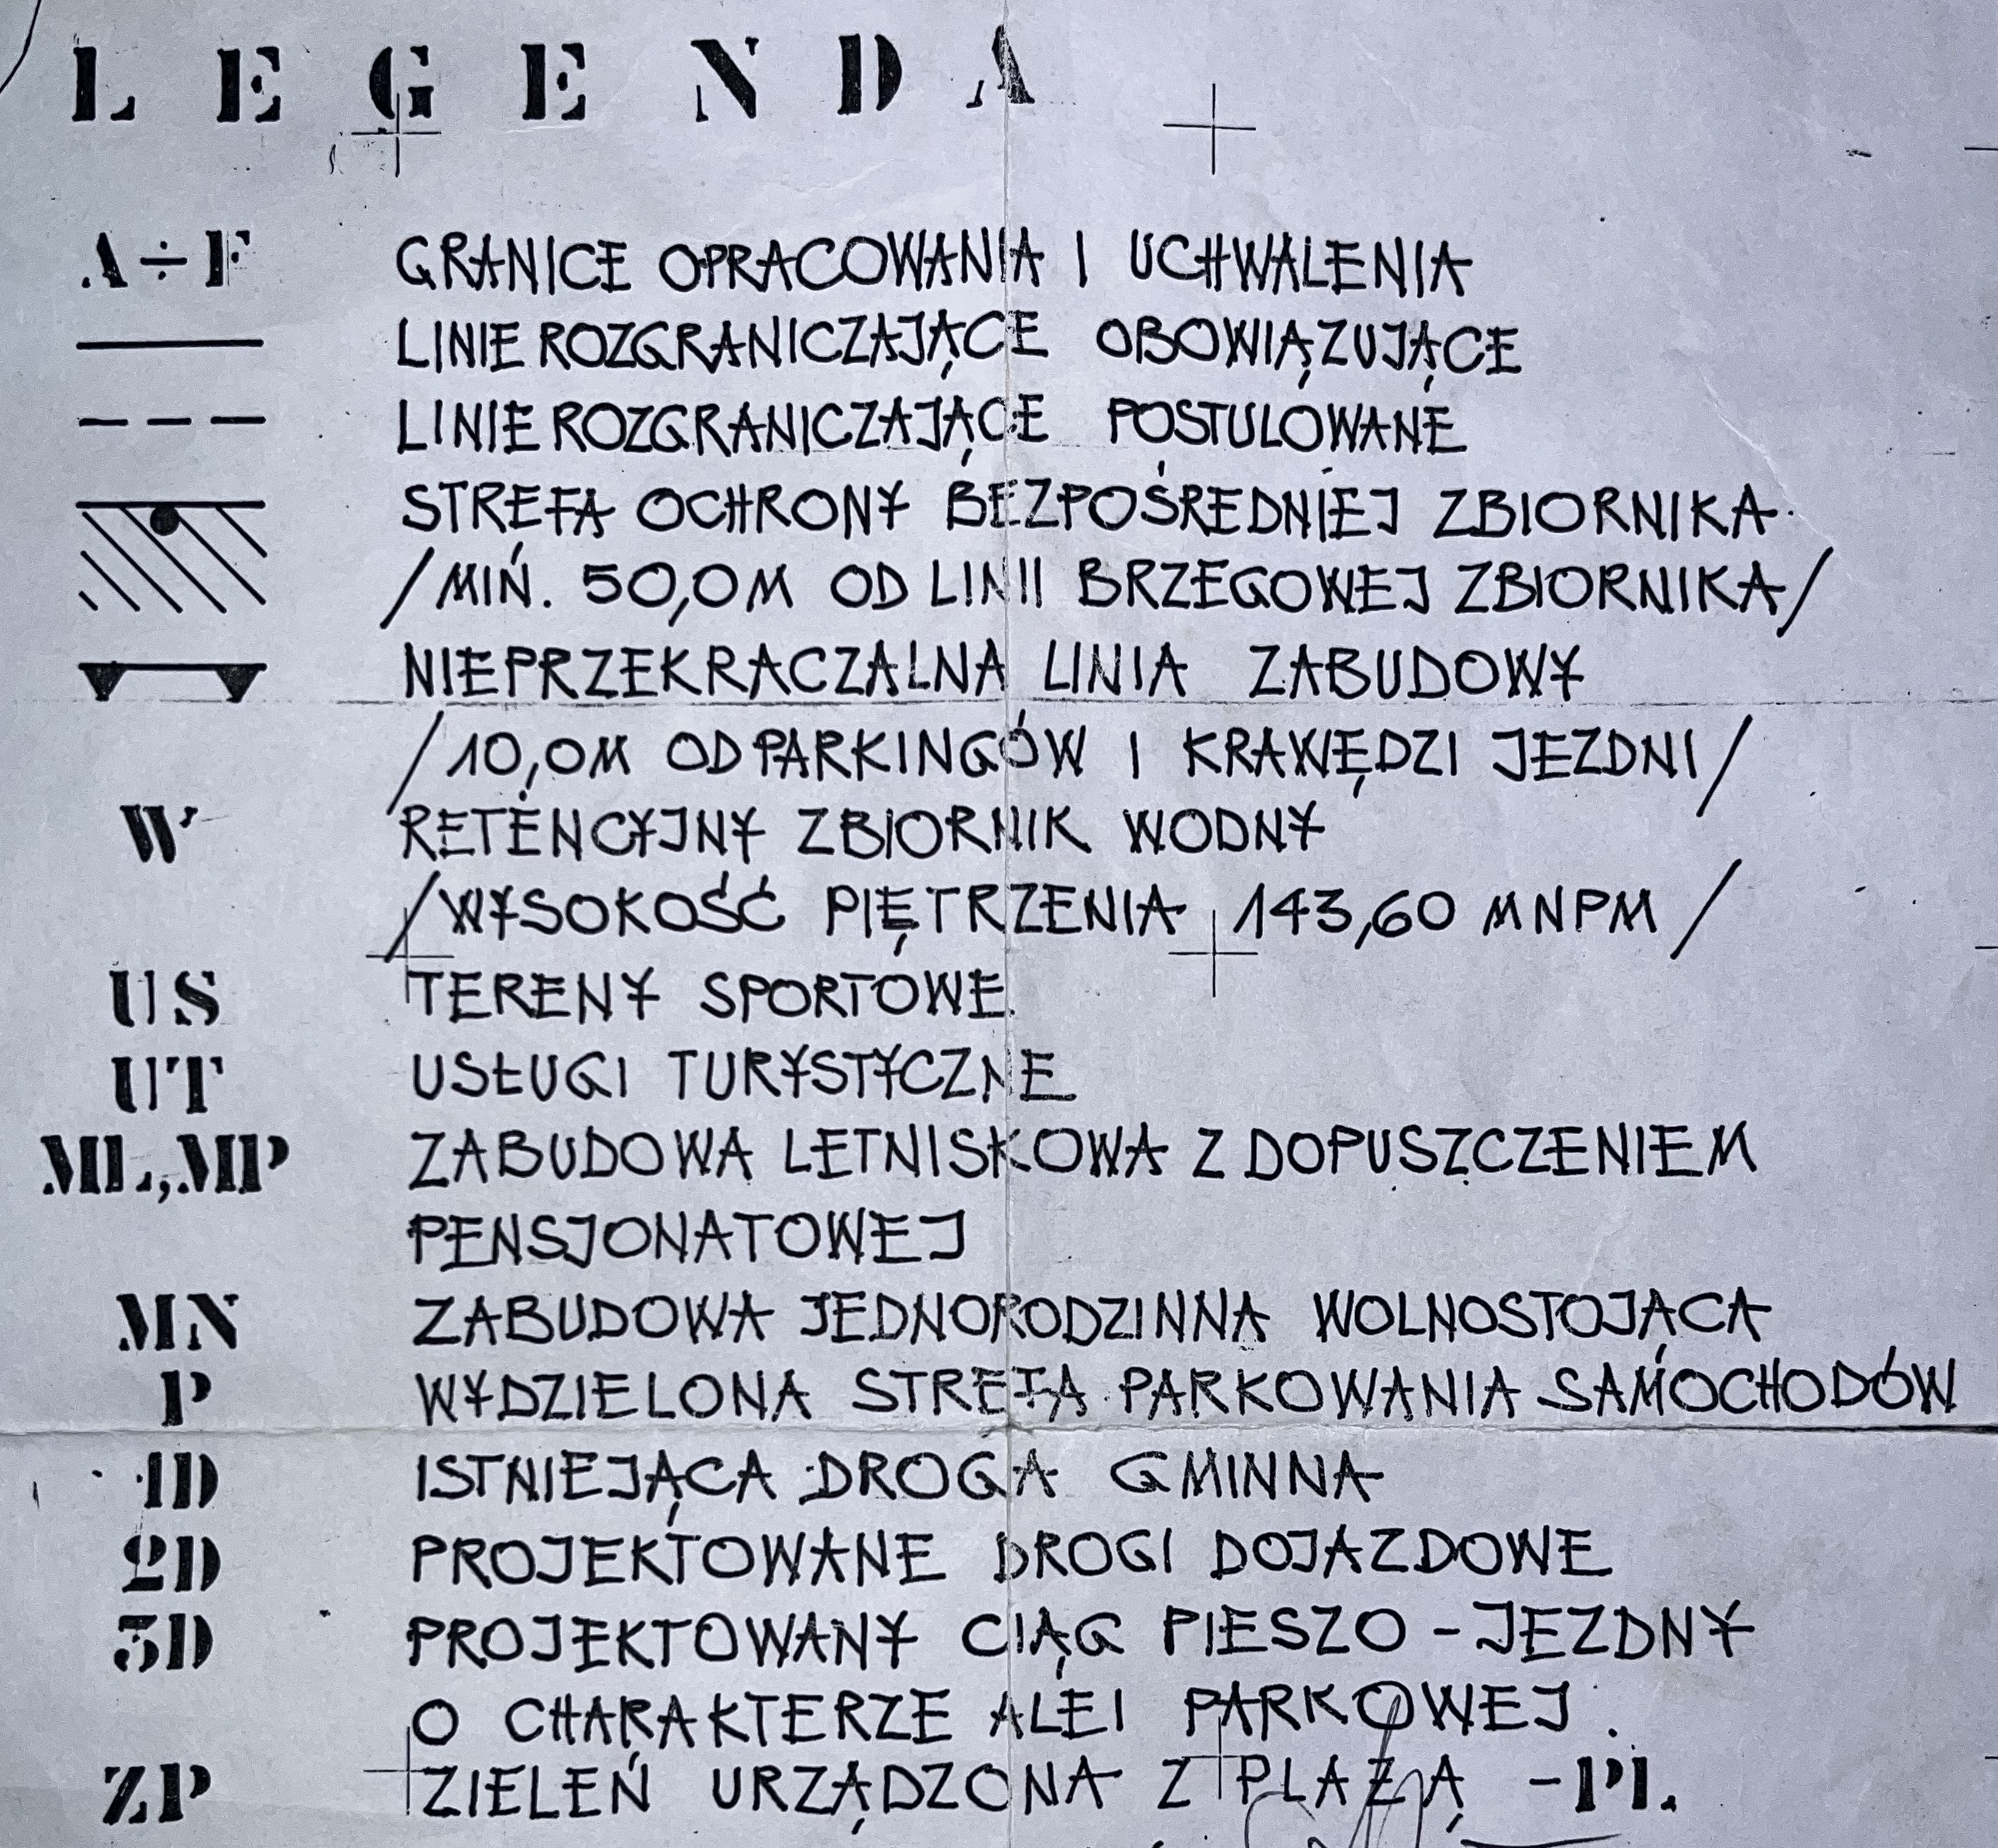 LEGENDA
A÷F GRANICE OPRACOWANIA I UCHWALENIA
LINIE ROZGRANICZAJĄCE OBOWIĄZUJĄCE
LINIE ROZGRANICZAJĄCE POSTULOWANE
STREFA OCHRONY BEZPOŚREDNIEJ ZBIORNIKA
/MIŃ. 50,0M OD LINII BRZEGOWEJ ZBIORNIKA/
NIEPRZEKRACZALNA LINIA ZABUDOWY
/10,0M OD PARKINGÓW I KRAWĘDZI JEZDNI/
W RETENCYJNY ZBIORNIK WODNY
/WYSOKOŚĆ PIĘTRZENIA 143,60 MNPM/
US TERENY SPORTOWE
UT USŁUGI TURYSTYCZNE
ML,MP ZABUDOWA LETNISKOWA Z DOPUSZCZENIEM
PENSJONATOWEJ
MN ZABUDOWA JEDNORODZINNA WOLNOSTOJĄCA
P WYDZIELONA STREFA PARKOWANIA SAMOCHODÓW
1D ISTNIEJĄCA DROGA GMINNA
2D PROJEKTOWANE DROGI DOJAZDOWE
3D PROJEKTOWANY CIĄG PIESZO-JEZDNY
O CHARAKTERZE ALEI PARKOWEJ.
ZP ZIELEŃ URZĄDZONA Z PLAŻĄ -PL.